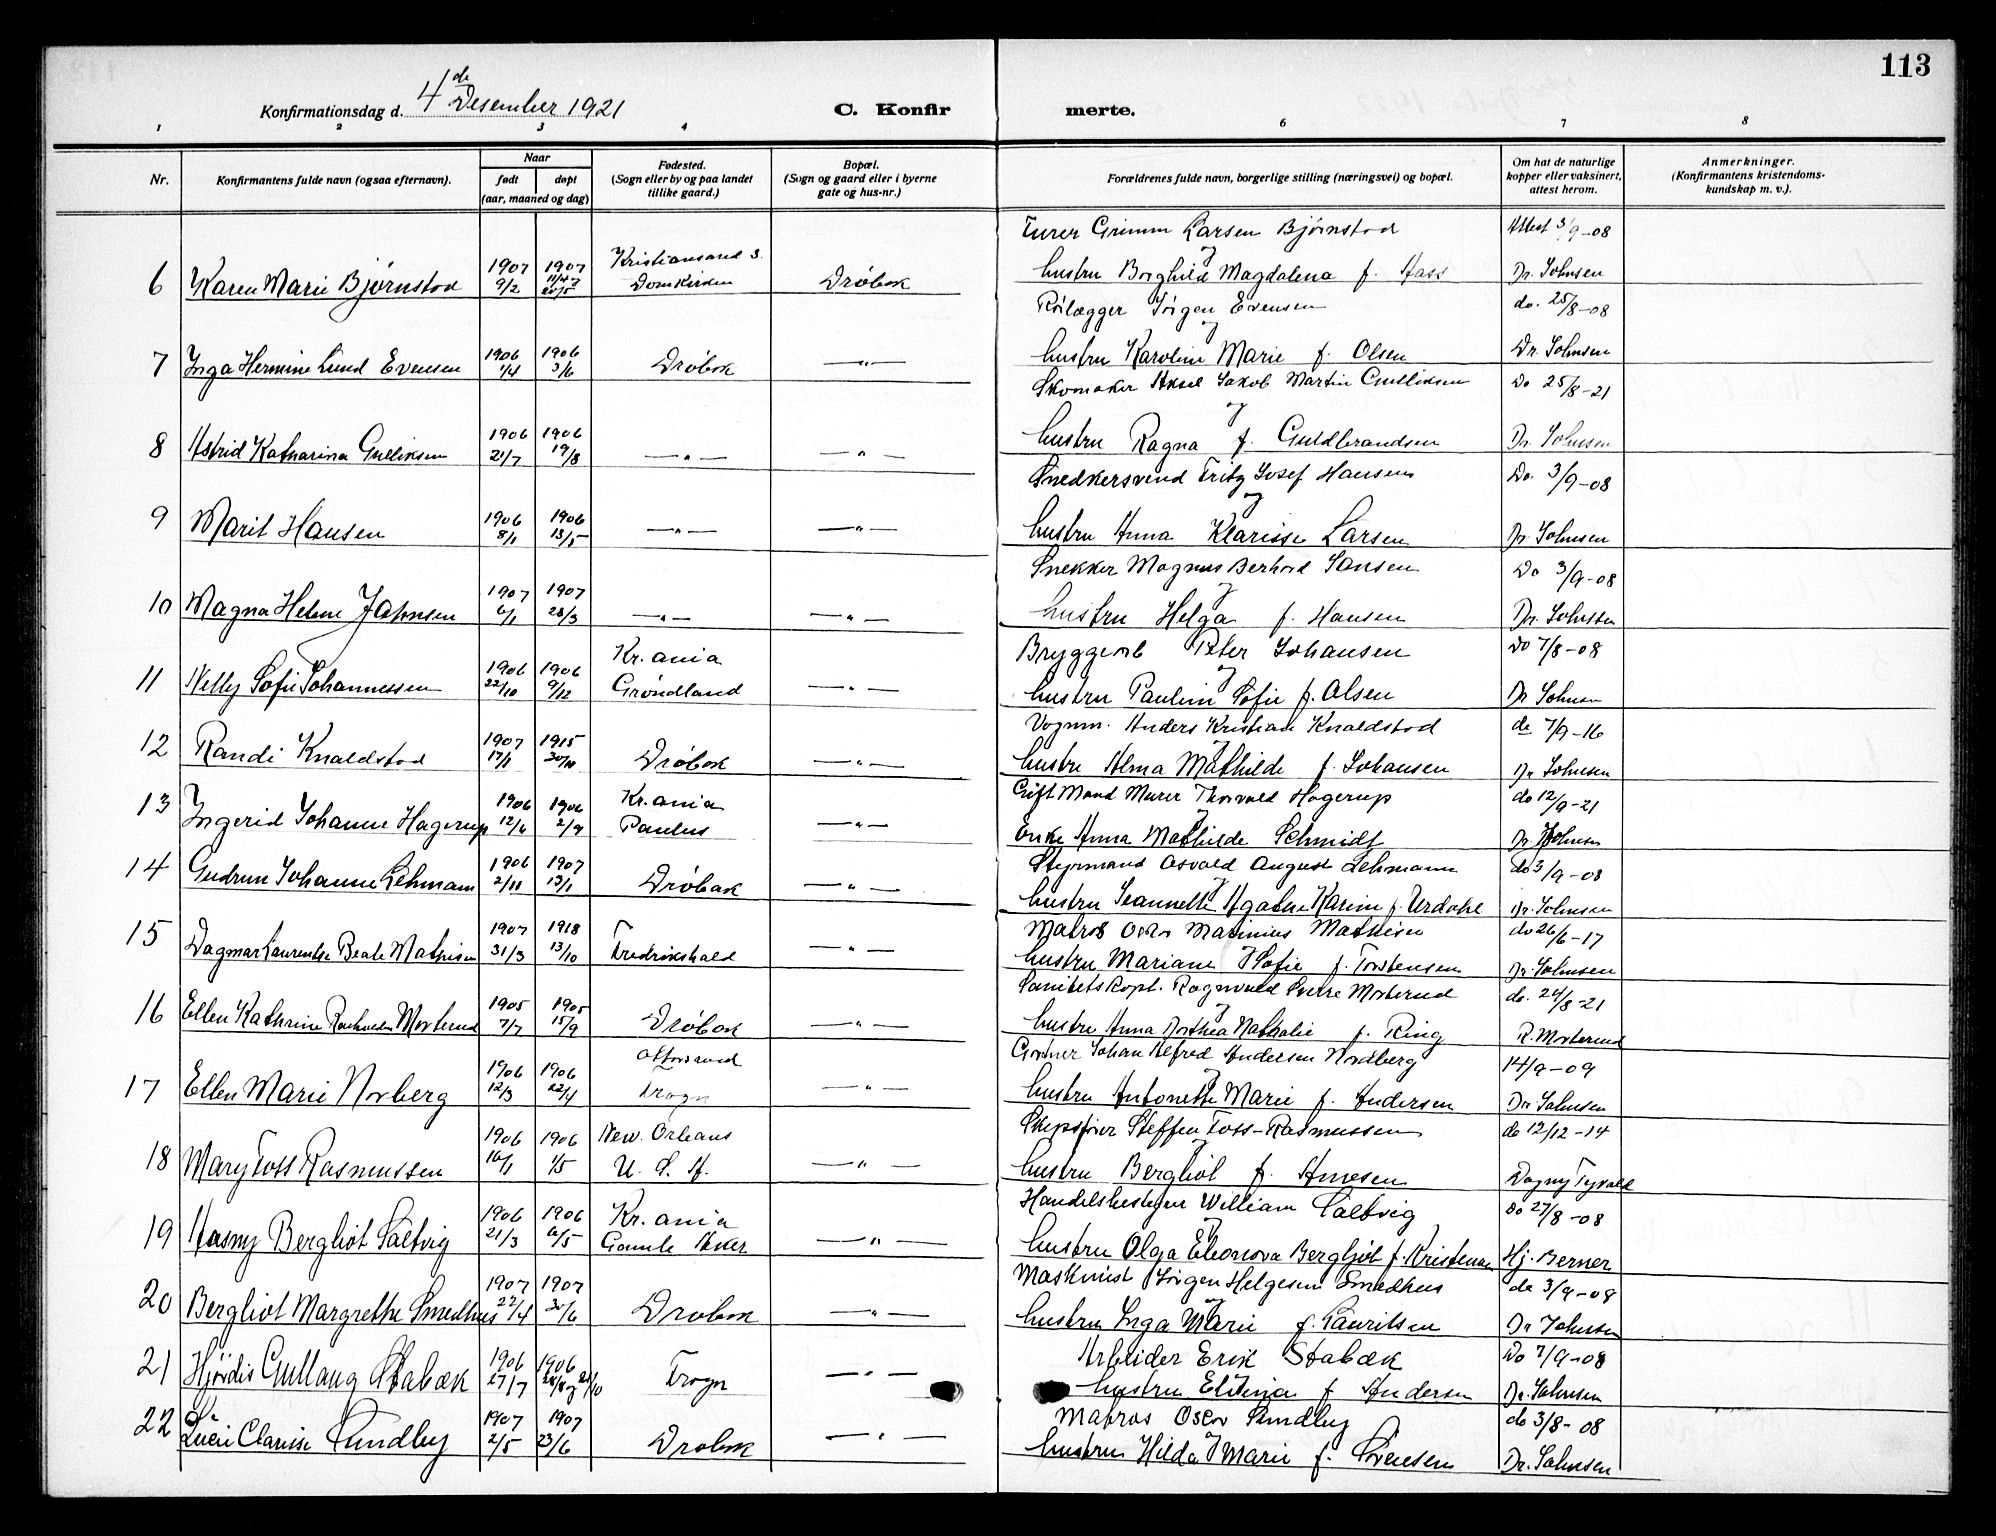 113
4de Desember 1921
Konfirmationsdag d.
C. Konfir merte.
1 2 3 4 6 7 8
Nr.
Konfirmantens fulde navn (ogsaa efternavn).
Naar
født døpt
(aar, maaned og dag)
Fødested.
(Sogn eller by og paa landet
tillike gaard.)
Bopæl.
(Sogn og gaard eller i byerne
gate og hus-nr.)
Forældrenes fulde navn, borgerlige stilling (næringsvei) og bopæl.
Om hat de naturlige
kopper eller vaksinert,
attest herom.
Anmerkninger.
(Konfirmantens kristendoms-
kundskap m. v.).
Grimm Larsen Bjørnstad Attest 3/9-08
1907 1907 Kristiansand S. og
6 Karen Marie Bjørnstad 9/2 Domkirken Drøbak hustru Borghild Magdalena f. Aass Dr. Johnsen
Jørgen Evensen do. 25/8-08
1906 1906 og
7 Inga Hermine Lund Evensen 1/4 3/6 Drøbak —"— hustru Karoline Marie f. Olsen Dr. Johnsen
Skomaker Aksel Jakob Martin Gulliksen Do 25/8-21
1906 1906 og
8 Astrid Katharina Gulliksen 21/7 19/8 —"— —"— hustru Ragna f. Guldbrandsen Dr. Johnsen
Snedkersvend Fritz Josef Hansen Do. 3/9-08
1906 1906 og
9 Marit Hansen 8/1 13/5 —"— —"— hustru Anna Klarisse Larsen Dr. Johnsen
Snekker Magnus Berhard Jansen Do 3/9-08
1907 1907 og
10 Magna Helene Jahnsen 6/1 28/3 —"— —"— hustru Helga f. Hansen Dr. Johnsen
Kr.ania Bryggerarb Peter Johansen Do 7/8-08
1906 1906 og
11 Nelly Sofie Johannessen 22/10 9/12 Grøndland —"— hustru Pauline Sofie f. Olsen Dr Johnsen
Vognm. Anders Kristian Knaldstad do 7/9-16
1907 1915 og
12 Randi Knaldstad 17/1 30/10 Drøbak —"— hustru Alma Mathilde f. Johansen Dr Johnsen
1906 1906 Kr.ania Gift Mand Murer Thorvald Hagerup do 12/9-21
13 Ingerid Johanne Hagerup 12/6 2/9 Paulus —"— Enke Anna Mathilde Schmidt Dr Johnsen
1906 1907 Styrmand Osvald August Lehmann do 3/9-08
14 Gudrun Johanne Lehmann 2/11 13/1 Drøbak —"— hustru Jeannette Agathe Karine f. Urdahl Dr. Johnsen
1907 1918 Matros Oskar Marinius Mathisen do 26/6-17
15 Dagmar Laurentse Beate Mathisen 31/3 13/10 Fredrikshald —"— hustru Mariane Sofie f. Torstensen Dr. Johnsen
1905 1905 Sanitetskapt. Ragnvald Sverre Morterud do. 24/8-21
16 Ellen Kathrine Morterud 7/7 15/9 Drøbak —"— hustru Anna Dorthea Nathalie f. Ring R. Morterud
1906 1906 Gartner Johan Alfred Andersen Nordberg 14/9-09
17 Ellen Marie Norberg 12/3 22/4 Frogn —"— hustru Antonette Marie f. Andersen Dr. Johnsen
1906 1906 New. Orleans Skipsfører Steffen Foss-Rasmussen do 12/12-14
18 Mary Foss Rasmussen 16/1 1/5 U. S. A. —"— hustru Bergliot f. Arnesen Dagny Tyvold
1906 1906 Kr.ania Handelsbestyrer William Saltvig Do 27/8-08
19 Aasny Bergliot Saltvig 21/3 6/5 Gamle Aker —"— hustru Olga Eleonora Bergljot f. Kristensen Hj. Berner
1907 1907 Maskinist Jørgen Helgesen Smedhus do 3/9-08
20 Bergliot Margrethe Smedhus 22/4 30/6 Drøbak —"— hustru Inga Marie f. Lauritsen Dr Johnsen
1906 1906 Arbeider Erik Stabæk Do 7/9-08
21 Hjørdis Gullaug Stabæk 27/7 Frogn —"— hustru f Andersen Dr. Johnsen
1907 1907 Matros Oskar Sundby do 3/8-08
22 Lucie Clarise Sundby 2/5 23/6 Drøbak —"— hustru Hilda Marie f. Sørensen Dr. Johnsen